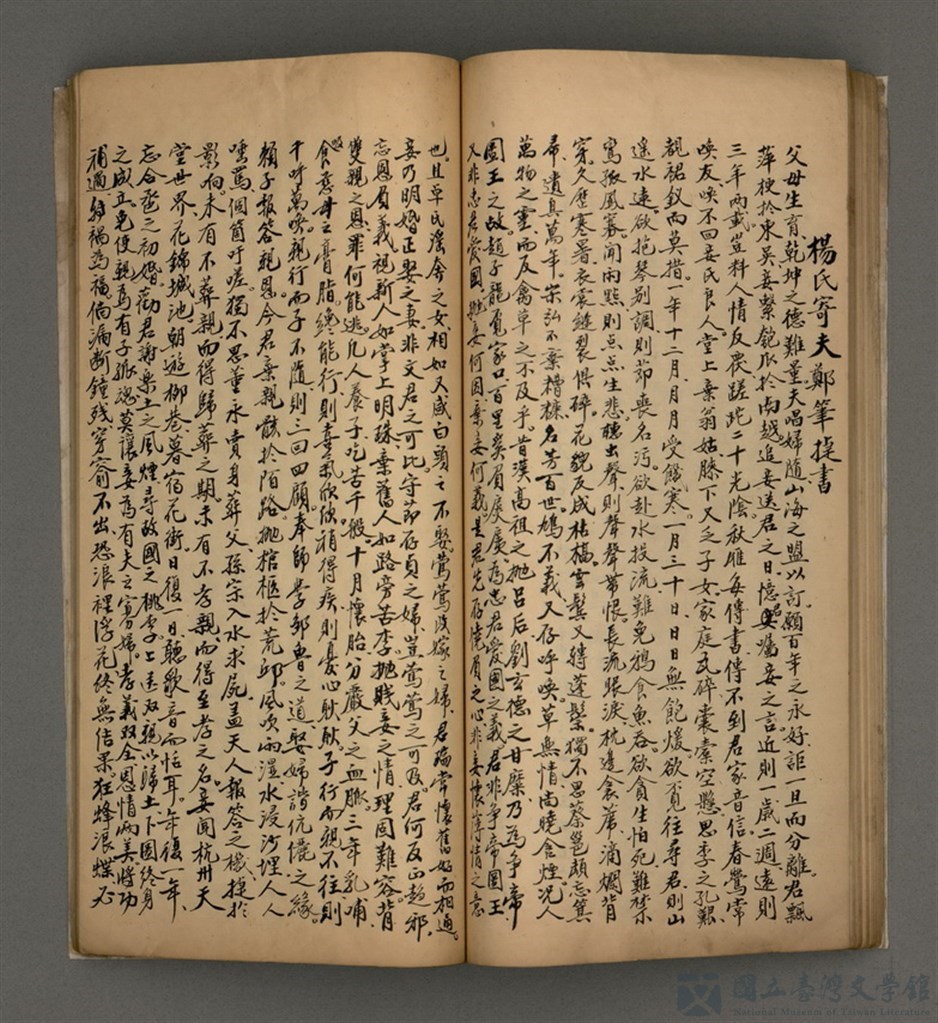 楊氏寄夫鄭筆捷書
父母生育乾坤之德難量夫唱婦隨山海之盟以訂願百年之永好詎一旦而分離君飄
萍梗於東吳妾繫匏瓜於南越追妾送君之日憶君囑妾之言近則一歲二週遠則
三年兩載豈料人情反覆蹉跎二十光陰秋雁每傳書傳不到君家音信春鶯常
喚友喚不回妾氏良人堂上棄翁姑膝下又乏子女家庭瓦碎裳橐空懸思季之孔艱
覩裙釵而莫措一年十二月月受饑寒一月三十日日無飽煖欲覓往尋君則山
遙水遠欲抱琴別調則節喪名污欲赴水投流難免鴉食魚吞欲貪生怕死難禁
鸞孤鳳寡聞雨點則点点生悲聽出聲則聲聲帶恨長流眼淚枕邊食蓆滴爛背
穿久歷寒暑衣裳縫裂俱碎花貌反成枯槁雲鬢又轉蓬鬆獨不思蔡邕顧忘箕
帚遺臭萬年宋弘不棄糟糠名芳百世鳩不義又存呼喚草無情尚曉含煙況人
萬物之靈而反禽草之不及乎昔漢高祖之拋呂后劉玄德之甘糜乃為爭帝
圖王之故趙子龍覓家口百里奚眉戾廖為忠君愛國之義君非爭帝圖王
又非忠君愛國拋妾何因棄妾何義是君先存饒眉之心非妾懷薄情之意
也且卓氏淫奔之女相如又感白頭之不娶鶯鶯改嫁之婦君瑞常懷舊好而相通
妾乃明婚正娶之妻非文君之可比守節存貞之婦豈鶯鶯之可及君何反正趨邪
忘恩負義視新人如掌上明珠棄舊人如路旁苦李拋賤妾之情理固難容背
雙親之恩罪何能逃凡人養子吃苦千般十月懷胎分嚴父之血脈三年乳哺
食慈母之膏脂纔能行則喜氣欣欣稍得疾則憂心耿耿子行而親不往則
千呼萬喚親行而子不隨則三回四顧奉師學鄒魯之道娶婦諧伉儷之緣
賴子報答親恩今君棄親骸於陌路拋棺柩於荒邱風吹雨濕水浸沙埋人人
唾罵個箇吁嗟獨不思董永賣身葬父孫宗入水求屍盖天人報答之機捷於
影响未有不葬親而得歸葬之期未有不孝親而得至孝之名妾聞杭州天
堂世界花錦城池朝遊柳巷暮宿花街日復一日聽歌音而怡耳年復一年
忘合巹之初婚勸君謝樂土之風煙尋故國之桃李上送双親以歸土下圖終身
之成立免使親為有子孤魂莫讓妾為有夫之寡婦孝義双全恩情兩美將功
補過轉禍為福倘漏斷鐘殘穿窬不出恐浪裡浮花終無結果狂蜂浪蝶必